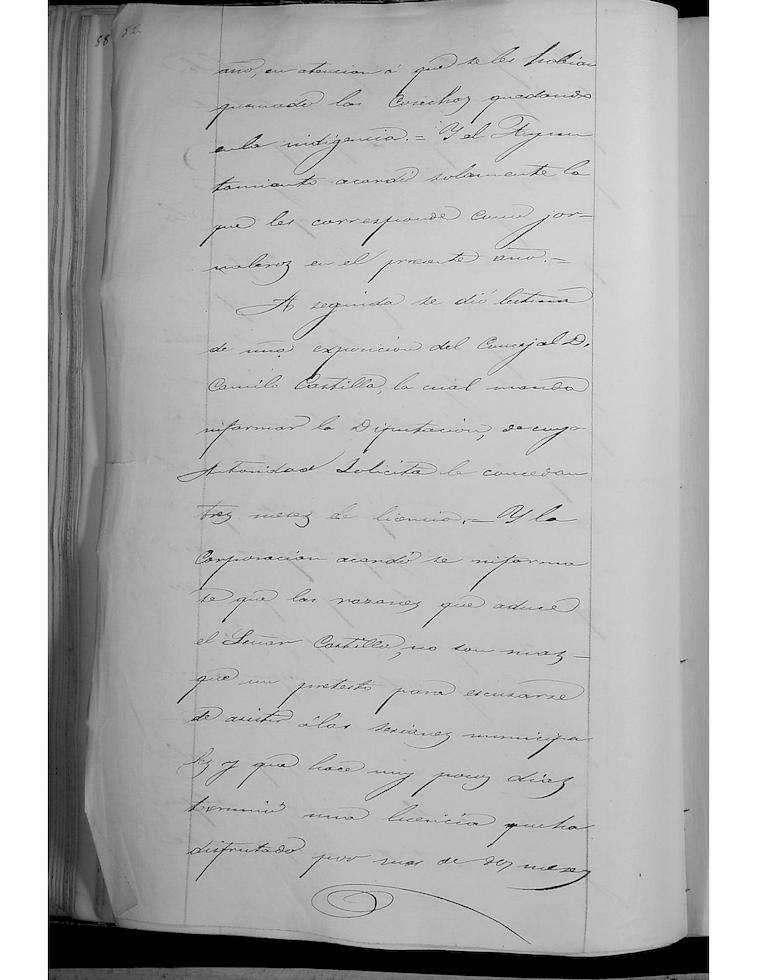 58 52
año, en atencion á que se les habian
quemado las Cosechas quedando
en la indigencia.= Y el Ayun
tamiento acordó solamente la
que les corresponde como jor-
naleros en el presente año.=
A seguida se dió lectura
de una exposicion del Concejal D.
Camilo Castilla, la cual manda
informar la Diputacion, de cuya
Autoridad Solicita le concedan
tres meses de licencia.= Y la
Corporacion acordó se informa
se que las razones que aduce
el Señor Castilla, no son mas-
que un pretesto para escusarse
de asistir á las sesiones municipa
les y que hace muy pocos dias
terminó una licencia que ha
disfrutado por mas de dos meses